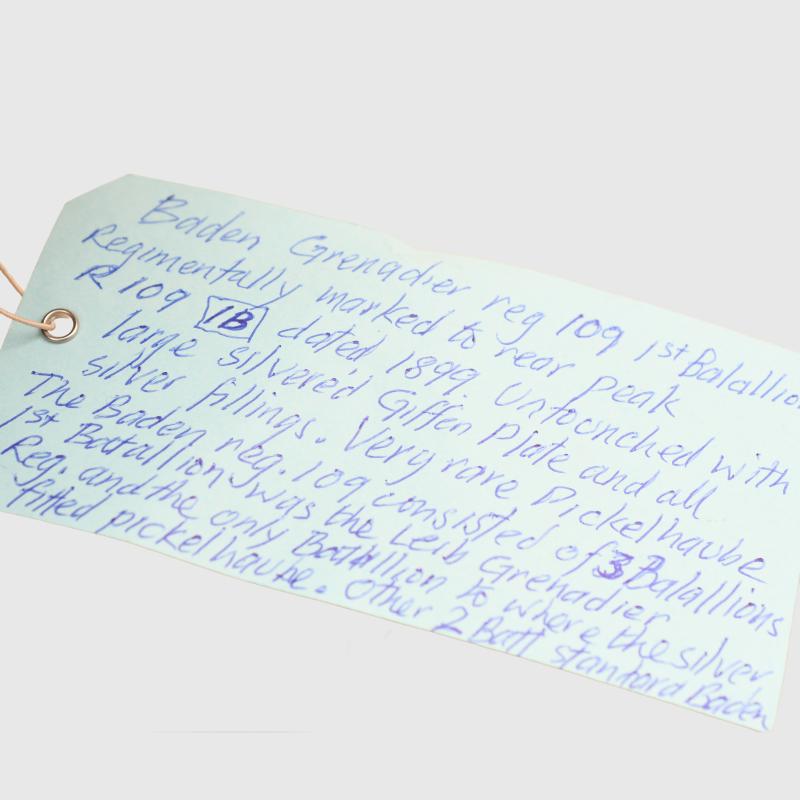 Baden Grenadier reg 109 1st Balallion
Regimentally marked to rear peak
R 109 1B dated 1899. Untoonched with
large silvered Giffen Plate and all
silver fillings. Very rare Pickelhaube
The Baden reg. 109 consisted of 3 Balallions
1st Batallion was the Leib Grenadier
Reg. and the only Batallion to where the silver
fitted pickelhaube. Other 2 Batt standard Baden